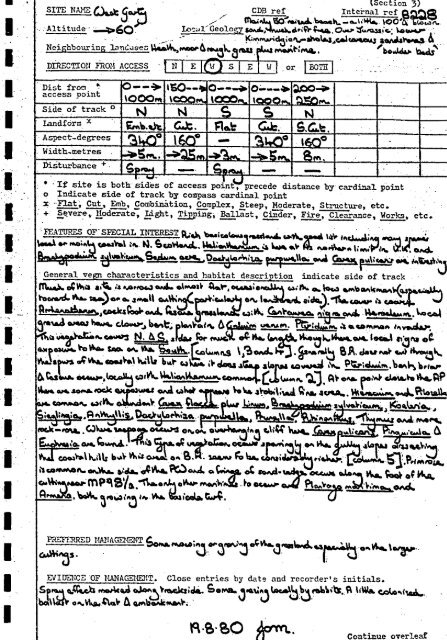 (Section 3)
SITE NAME West Garty CDB ref Internal ref 8228
Altitude →60' Local Geology Mainly 80' raised beach - a little 100' & blown
sand, much drift free. Over Jurassic, Lower
Kimmeridgian - shales, calcareous sandstones &
"boulder beds"
Neighbouring landuses Heath, moor & rough grass plus maritime.
DIRECTION FROM ACCESS N E W S E W or BOTH
Dist from * access point 0→1000m 150→1000m 0→1000m 0→1000m 200→250m
Side of track o N N S S N
Landform x Emb. etc. Cut. Flat Cut. S.Cut.
Aspect-degrees 340° 160° — 340° 160°
Width-metres →5m. →25m →3m →5m 8m.
Disturbance + Spray — Spray — —
* If site is both sides of access point, precede distance by cardinal point
o Indicate side of track by compass cardinal point
x Flat, Cut, Emb, Combination, Complex, Steep, Moderate, Structure, etc.
+ Severe, Moderate, Light, Tipping, Ballast, Cinder, Fire, Clearance, Works, etc.
FEATURES OF SPECIAL INTEREST Rich basicolous grassland with good list including many species
local or mainly coastal in N. Scotland. Helianthemum is here at its northern limit in U.K. and
Brachypodium sylvaticum Sedum acre, Dactylorhiza purpurella and Carex pulicaris are interesting
General vegn characteristics and habitat description indicate side of track
Much of this site is narrow and almost flat, occasionally with a low embankment (especially
toward the sea) or a small cutting (particularly on landward side). The cover is coarse
Arrhenatherum, cocksfoot and fescue grassland with Centaurea nigra and Heracleum. Local
grazed areas have clover, bent, plantain & Galium verum. Pteridium is a common invader.
This vegetation covers N. & S. sides for much of the length though there are local signs of
exposure to the sea on the South [columns 1, 3 and 4]. Generally B.R. does not cut through
the spurs of the coastal hills but where it does steep slopes covered in Pteridium, bent, brier
& fescue occur, locally with Helianthemum common [column 2]. At one point close to the AP
there are some rock exposures and what appears to be stabilised fine scree. Hieracium and Pilosella
are common with abundant Carex flacca plus Linum, Brachypodium sylvaticum, Koeleria,
Sieglingia, Anthyllis, Dactylorhiza purpurella, Prunella, Rhinanthus, Thymus and more
rock-rose. Where seepage occurs on or overhanging cliff here Carex pulicaris, Pinguicula &
Euphrasia are found. This type of vegetation occurs sparingly on the gully slopes dissecting
the coastal hills but this area on B.R. seems to be considerably richer. [column 5]. Primrose
is common on the side of the PW and a fringe of sand-sedge occurs along the foot of the
cutting near MP98½. The only other maritimes to occur are Plantago maritima and
Armeria, both growing in the basicole turf.
PREFERRED MANAGEMENT Some mowing or grazing of the grassland especially on the larger
cuttings.
EVIDENCE OF MANAGEMENT. Close entries by date and recorder's initials.
Spray effects marked along trackside. Some grazing locally by rabbits. A little colonised
ballast on the flat & embankment.
19.8.80 jom.
Continue overleaf